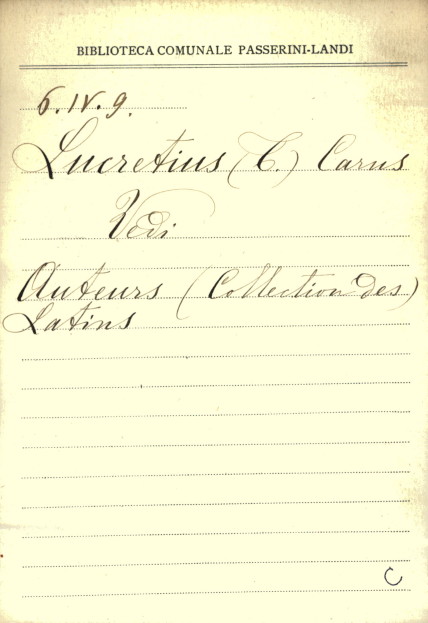 BIBLIOTECA COMUNALE PASSERINI-LANDI
6.IV.9.
Lucretius (T.) Carus
Vedi
Auteurs (Collection des)
Latins
C